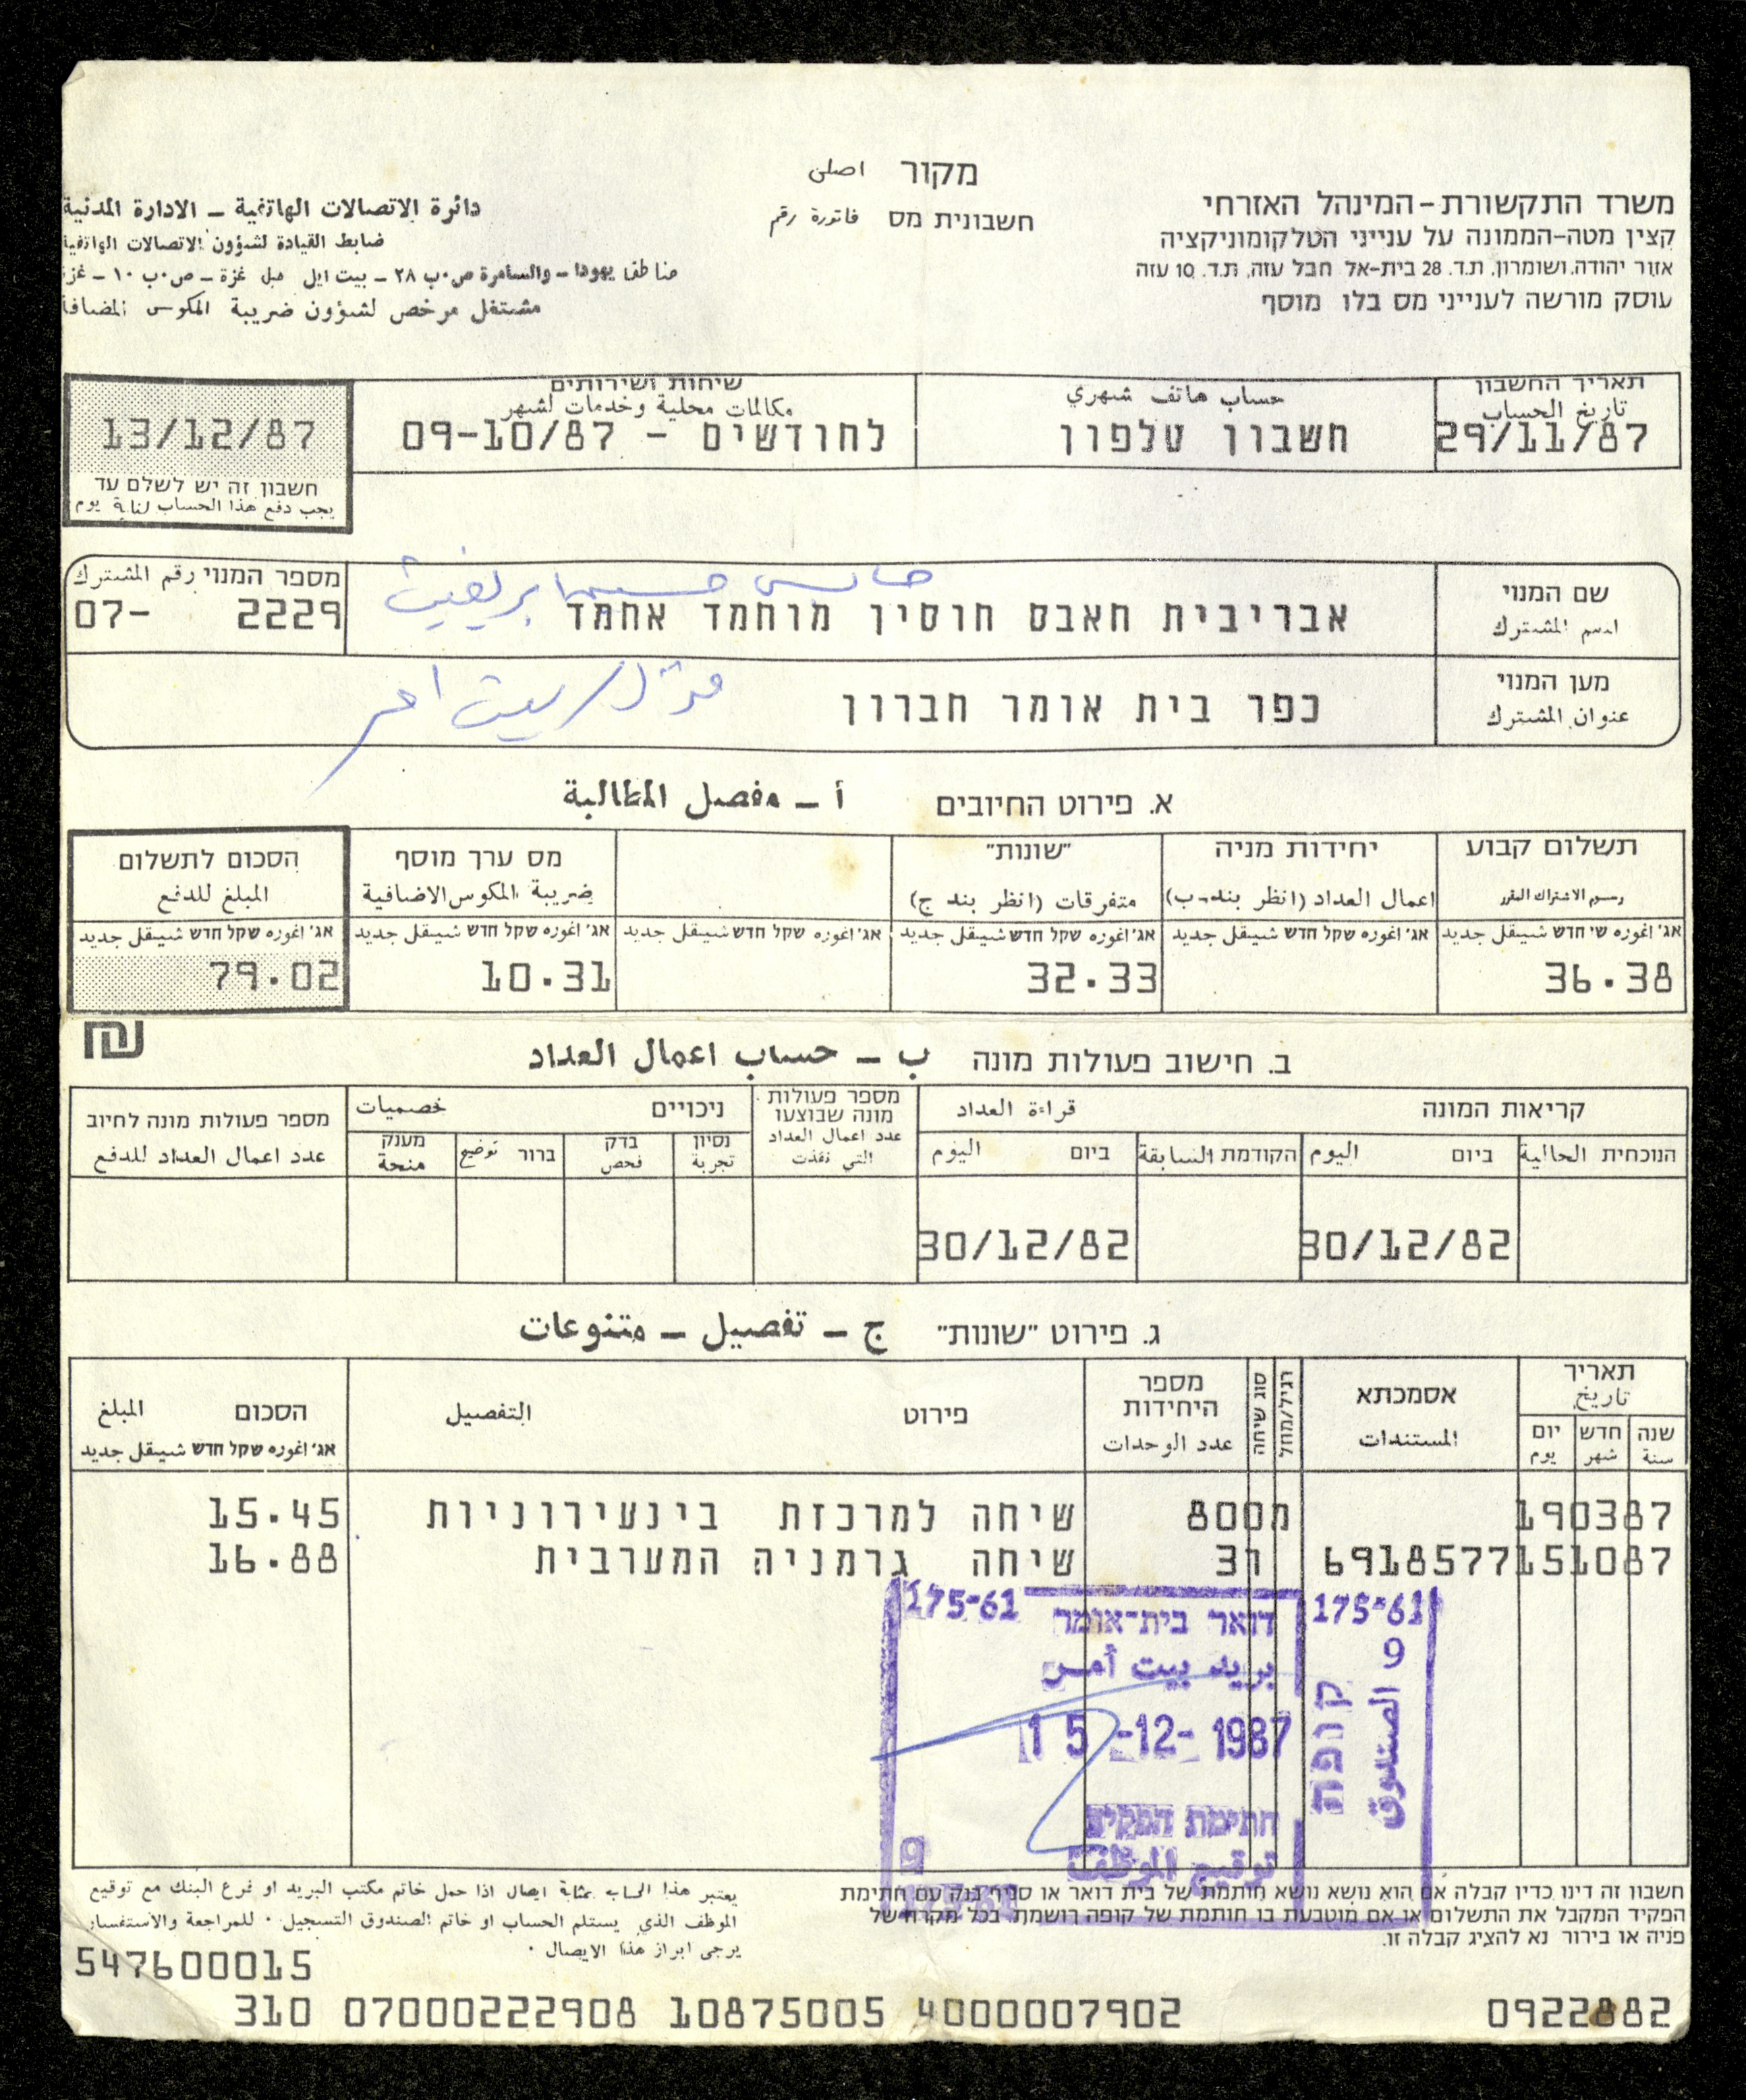 מקור اصلي
חשבונית מס فاتورة رقم
משרד התקשורת-המינהל האזרחי
קצין מטה-הממונה על ענייני הטלקומוניקציה
אזור יהודה ושומרון, ת.ד. 28 בית-אל חבל עזה, ת.ד. 10 עזה
עוסק מורשה לענייני מס בלו מוסף
دائرة الاتصالات الهاتفية – الادارة المدنية
ضابط القيادة لشؤون الاتصالات الهاتفية
مناطق يهودا – والسامرة ص.ب ٢٨ – بيت ايل حبل غزة – ص.ب ١٠ – غزة
مشتغل مرخص لشؤون ضريبة المكوس المضافة
תאריך החשבון
تاريخ الحساب
29/11/87
حساب هاتف شهري
חשבון טלפון
שיחות ושירותים
مكالمات محلية وخدمات لشهر
לחודשים - 09-10/87
13/12/87
חשבון זה יש לשלם עד
يجب دفع هذا الحساب لغاية يوم
שם המנוי
اسم المشترك
حابس حسين بريغيث
אבריבית חאבס חוסין מוחמד אחמד
מספר המנוי رقم المشترك
07- 2229
מען המנוי
عنوان المشترك
כפר בית אומר חברון
א. פירוט החיובים أ – مفصل المطالبة
תשלום קבוע יחידות מניה "שונות" מס ערך מוסף הסכום לתשלום
رسوم الاشتراك المقرر اعمال العداد (انظر بند-ب) متفرقات (انظر بند ج) ضريبة المكوس الاضافية المبلغ للدفع
אג' اغوره שי חדש شيقل جديد אג' اغوره שקל חדש شيقل جديد אג' اغوره שקל חדש شيقل جديد אג' اغوره שקל חדש شيقل جديد אג' اغوره שקל חדש شيقل جديد אג' اغوره שקל חדש شيقل جديد
36.38 32.33 10.31 79.02
₪
ב. חישוב פעולות מונה ب – حساب اعمال العداد
קריאות המונה قراءة العداد
הנוכחית الحالية ביום اليوم הקודמת السابقة ביום اليوم
מספר פעולות
מונה שבוצעו
عدد اعمال العداد
التي نفذت
ניכויים خصميات
נסיון تجربة בדק فحص ברור توضيح מענק منحة
מספר פעולות מונה לחיוב
عدد اعمال العداد للدفع
30/12/82 30/12/82
ג. פירוט "שונות" ج – تفصيل – متنوعات
תאריך
تاريخ
שנה سنة חדש شهر יום يوم
אסמכתא
المستندات
רגיל/מוזל
סוג שיחה
מספר
היחידות
عدد الوحدات
פירוט التفصيل
הסכום المبلغ
אג' اغوره שקל חדש شيقل جديد
190387 מ 800 שיחה למרכזת בינעירוניות 15.45
151087 6918577 ר 3 שיחה גרמניה המערבית 16.88
175-61
דואר בית-אומר
بريد بيت أمر
15-12-1987
חתימת הפקיד
توقيع الموظف
9
175-61
9
קופה
الصندوق
חשבון זה דינו כדין קבלה אם הוא נושא נושא חותמת של בית דואר או סניף בנק עם חתימת
הפקיד המקבל את התשלום או אם מוטבעת בו חותמת של קופה רושמת. בכל מקרה של
פניה או בירור נא להציג קבלה זו.
يعتبر هذا الحساب بمثابة ايصال اذا حمل خاتم مكتب البريد او فرع البنك مع توقيع
الموظف الذي يستلم الحساب او خاتم الصندوق التسجيل. للمراجعة والاستفسار
يرجى ابراز هذا الايصال.
547600015
310 07000222908 10875005 4000007902 0922882